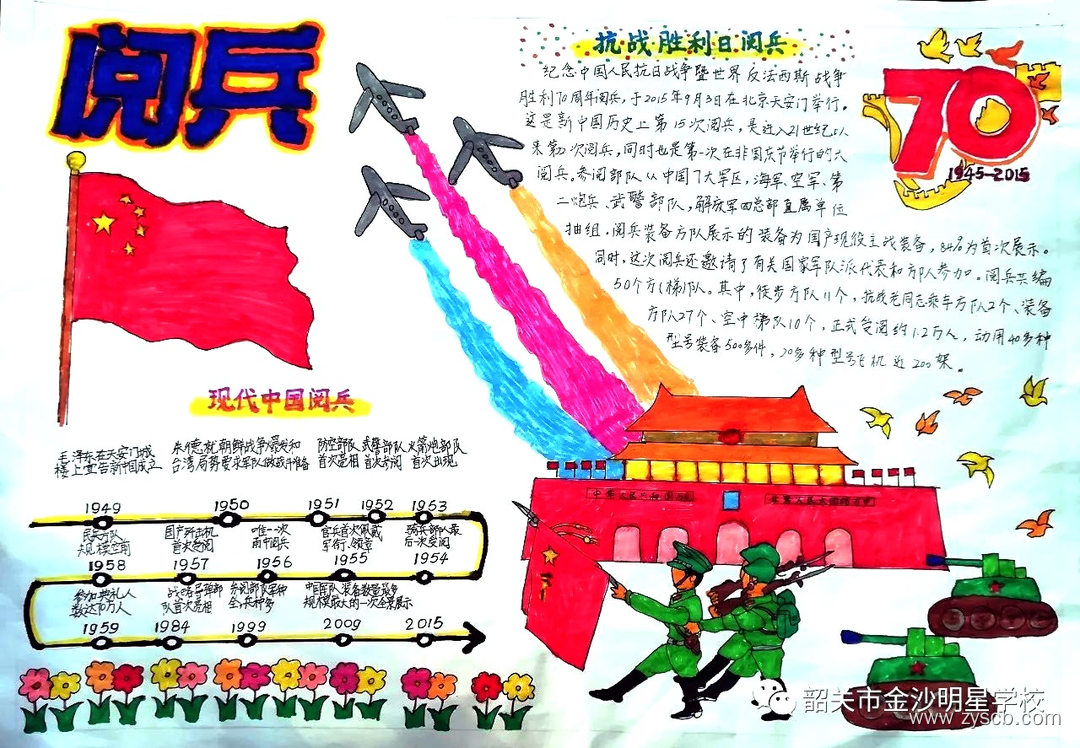 阅兵
抗战胜利日阅兵
纪念中国人民抗日战争暨世界反法西斯战争
胜利70周年阅兵，于2015年9月3日在北京天安门举行。
这是新中国历史上第15次阅兵，是进入21世纪以
来第次阅兵，同时也是第一次在非国庆节举行的大
阅兵。参阅部队从中国7大军区，海军、空军、第
二炮兵、武警部队，解放军四总部直属单位
抽组。阅兵装备方队展示的装备为国产现役主战装备，84%为首次展示。
同时，这次阅兵还邀请了有关国家军队派代表和方队参加。阅兵共编
50个方(梯)队。其中，徒步方队11个，抗战老同志乘车方队2个、装备
方队27个、空中梯队10个，正式受阅约1.2万人，动用40多种
型号装备500多件，20多种型号飞机近200架。
70
1945-2015
现代中国阅兵
毛泽东在天安门城
楼上宣告新中国成立
朱德就朝鲜战争爆发和
台湾局势要求军队做战斗准备
防空部队
首次亮相
武警部队
首次参阅
火箭炮部队
首次出现
1949 1950 1951 1952 1953
民兵方队
规模空前
国产歼击机
首次受阅
唯一次
雨中阅兵
官兵首次佩戴
军衔、领章
骑兵部队最
后一次受阅
1958 1957 1956 1955 1954
参加典礼人
数达70万人
战略导弹部
队首次亮相
参阅部队军种
全、兵种多
中国军队装备数量最多
规模最大的一次全景展示
1959 1984 1999 2009 2015
八一
韶关市金沙明星学校
www.zyscb.com